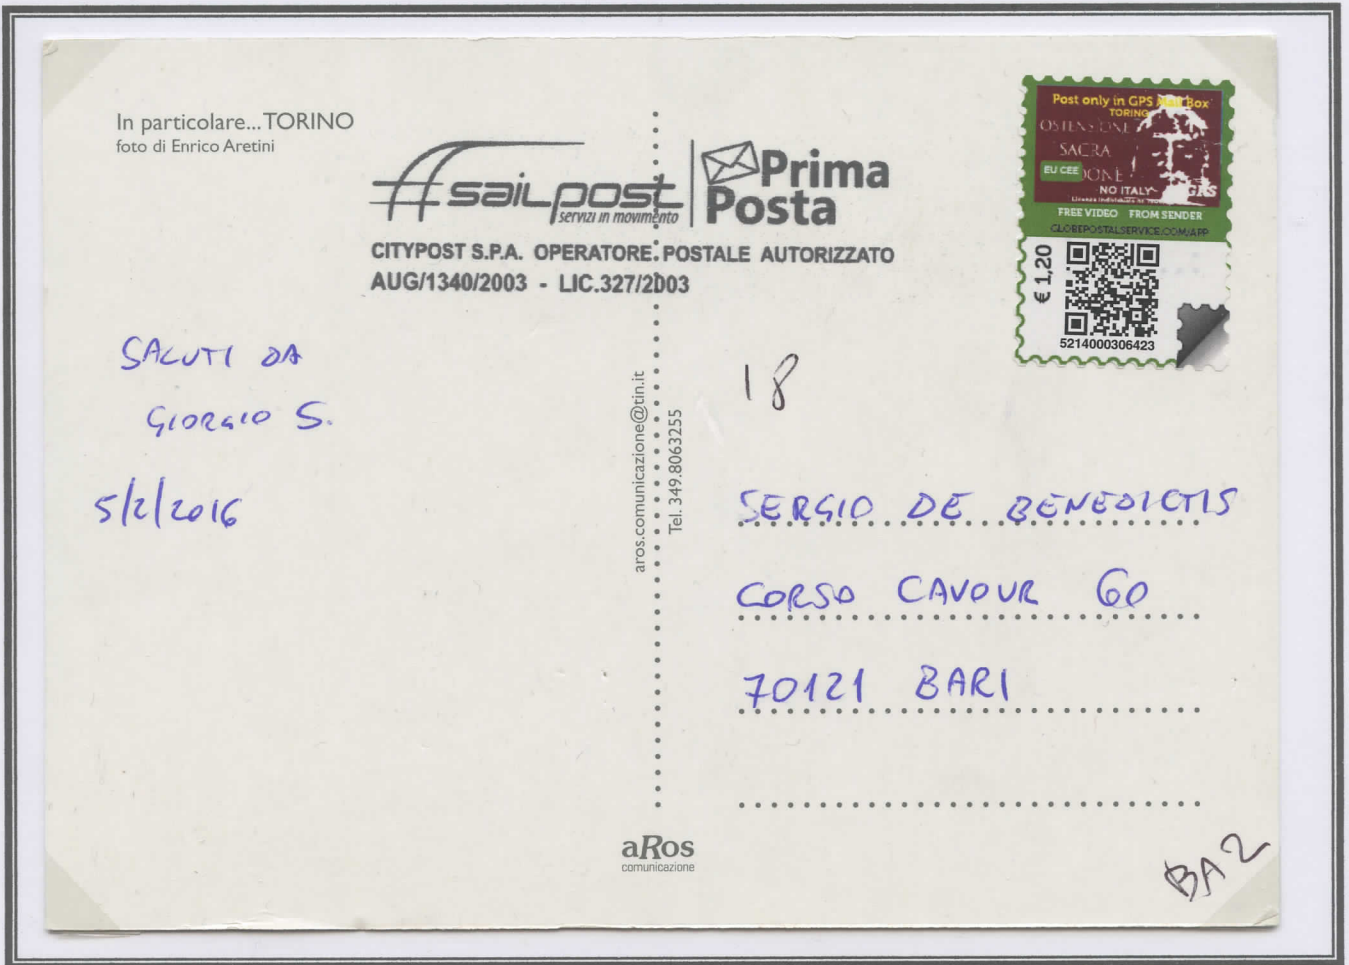 In particolare... TORINO
foto di Enrico Aretini
sailpost
servizi in movimento
Prima
Posta
CITYPOST S.P.A. OPERATORE POSTALE AUTORIZZATO
AUG/1340/2003 - LIC.327/2003
Post only in GPS Mail Box
TORINO
OSTENSIONE
SACRA
EU CEE
DONE
NO ITALY
GPS
FREE VIDEO FROM SENDER
GLOBEPOSTALSERVICE.COM/APP
€ 1,20
5214000306423
SALUTI DA
GIORGIO S.
5/2/2016
aros.comunicazione@tin.it
Tel. 349.8063255
18
SERGIO DE BENEDICTIS
CORSO CAVOUR 60
70121 BARI
aRos
comunicazione
BA2